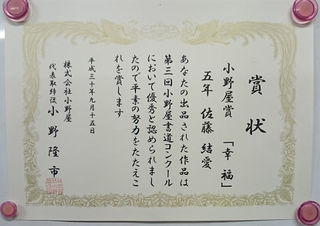 賞状
小野屋賞 「幸福」
五年 佐藤 結愛
あなたの出品された作品は
第三回小野屋書道コンクール
において優秀と認められまし
たので平素の努力をたたえこ
れを賞します
平成三十年九月十五日
株式会社小野屋
代表取締役 小野 隆市